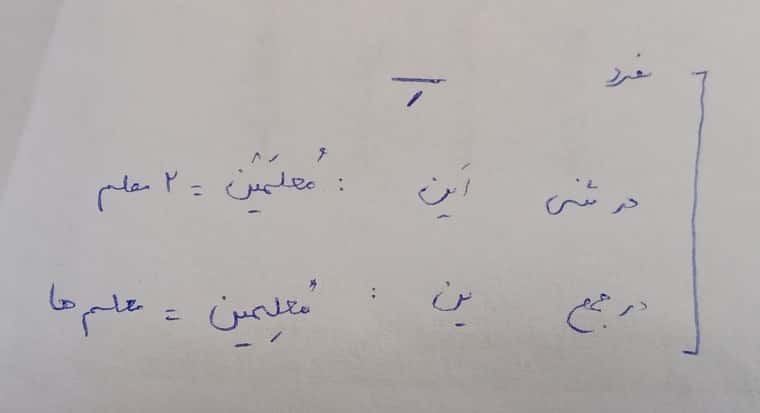 مفرد
در مثنی اَین : مُعلمَیْن = ۲ معلم
در جمع ین : مُعلِمین = معلم ها